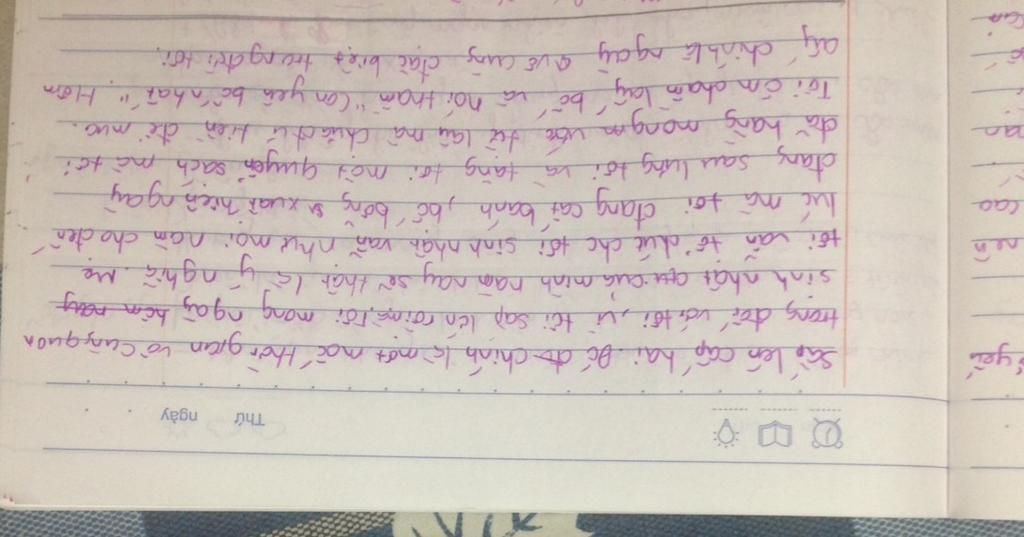 Thứ ngày
sắp lên cấp hai. Đó chính là một mốc thời gian vô cùng quan
trọng đối với tôi, vì tôi sắp lên rồi mà, tôi mong ngày hôm nay
sinh nhật của mình năm nay sẽ thật là ý nghĩa. Mẹ
tôi vẫn tổ chức cho tôi sinh nhật vẫn như mọi năm cho đến
lúc mà tôi đang cắt bánh, bố bỗng xuất hiện ngay
đằng sau lưng tôi và tặng tôi một quyển sách mà tôi
đã hằng mong ước từ lâu mà chưa đủ tiền để mua.
Tôi ôm chầm lấy bố và nói thầm "Con yêu bố nhất" Hôm
ấy chính là ngày vô cùng đặc biệt trong đời tôi.
yếu
nên
cao